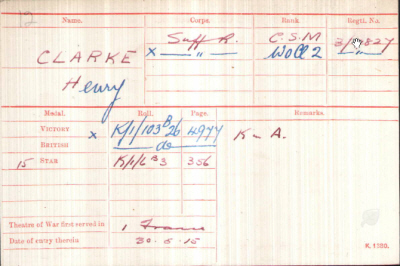 Name. Corps. Rank. Regtl. No.
CLARKE Suff R. C.S.M
x — " — WO Cl 2 — " —
Henry
Medal. Roll. Page. Remarks.
VICTORY x K/1/103 B 26 4977 K in A.
BRITISH — do —
15 STAR K/1/6 B 3 356
Theatre of War first served in 1 France
Date of entry therein 30.5.15
K. 1380.